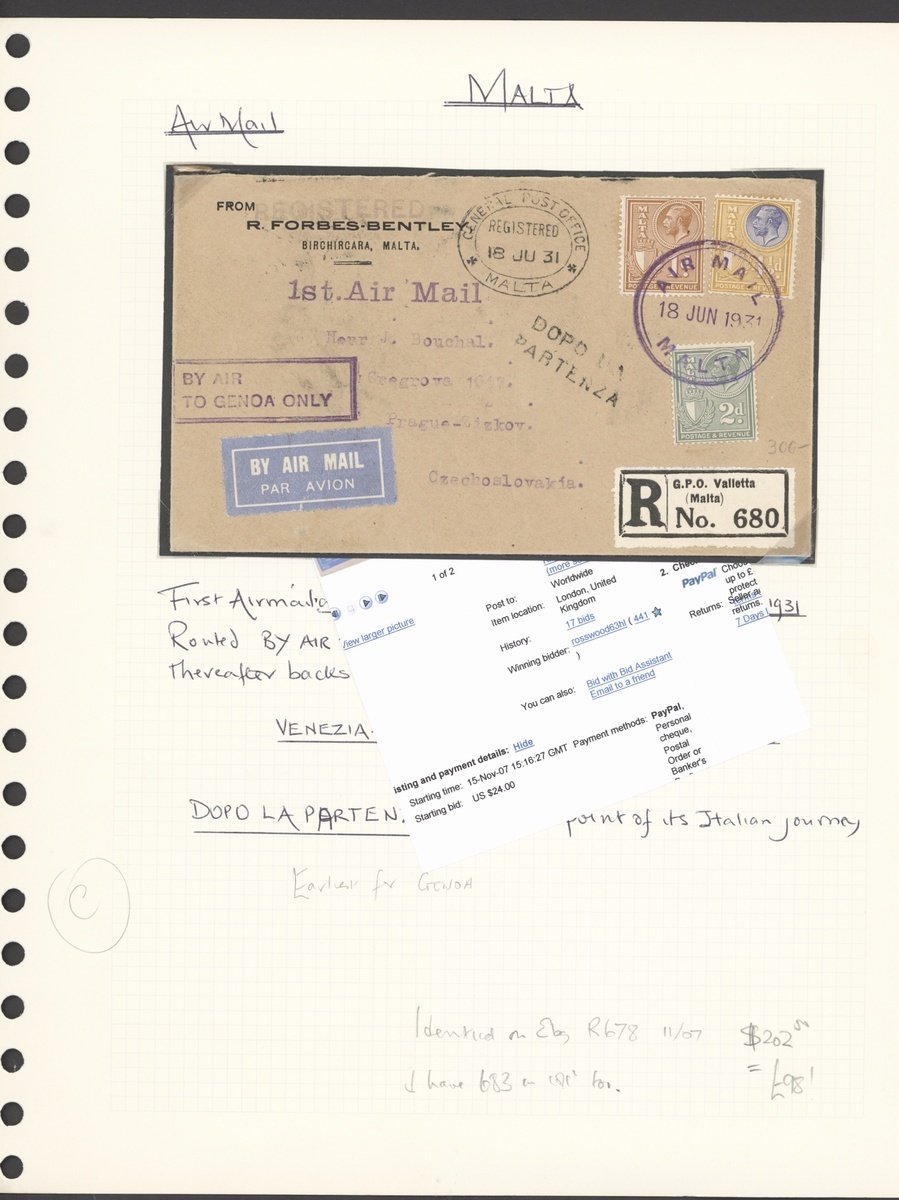 MALTA
Air Mail
REGISTERED
FROM
R. FORBES-BENTLEY
BIRCHIRCARA, MALTA.
GENERAL POST OFFICE
REGISTERED
18 JU 31
MALTA
MALTA
POSTAGE & REVENUE
POSTAGE & REVENUE
AIR MAIL
18 JUN 1931
MALTA
1st.Air Mail
Herr J. Bouchal.
DOPO
PARTENZA
BY AIR
TO GENOA ONLY
Prague-Zizkov.
2d
POSTAGE & REVENUE
300-
BY AIR MAIL
PAR AVION
Czechoslovakia.
R
G.P.O. Valletta
(Malta)
No. 680
First Airmail
1931
Routed BY AIR
thereafter backs
VENEZIA.
DOPO LA PARTEN.
point of its Italian journey
1 of 2
View larger picture
(more
Worldwide
Post to:
Item location: London, United
Kingdom
History: 17 bids
Winning bidder: rosswood63hl ( 441
)
You can also: Bid with Bid Assistant
Email to a friend
2. Chec
PayPal Choos
up to £
protect
Seller a
Returns: returns.
7 Days
isting and payment details: Hide
Starting time: 15-Nov-07 15:16:27 GMT Payment methods: PayPal,
Personal
cheque,
Postal
Order or
Banker's
Starting bid: US $24.00
Earliest for GENOA
C
Identical on Ebay R678 11/07 $202.50
= £98!
I have 683 in